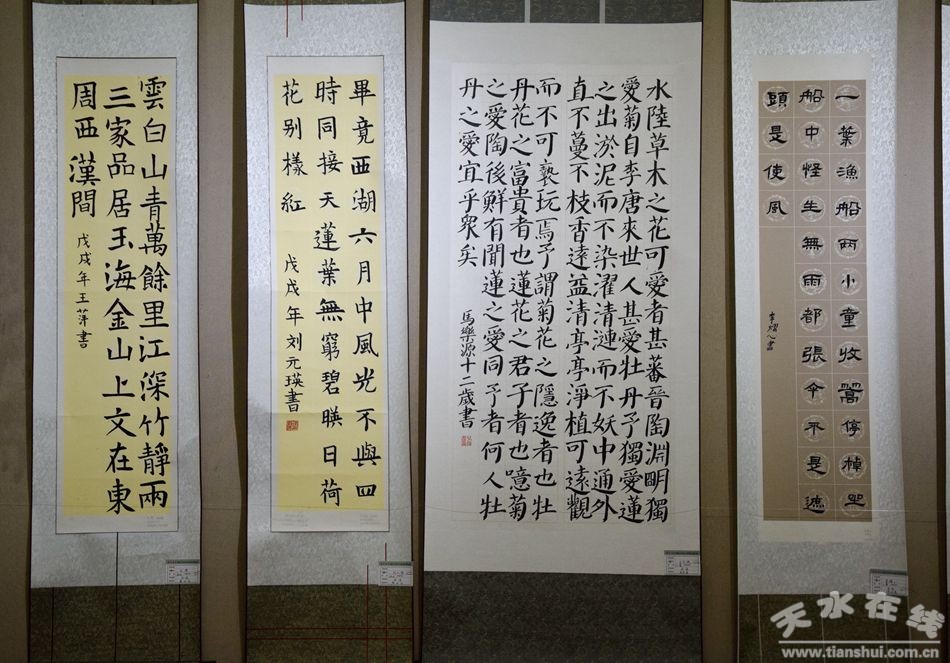 雲白山青萬餘里江深竹靜兩
三家品居玉海金山上文在東
周西漢間
戊戌年王萍書
畢竟西湖六月中風光不與四
時同接天蓮葉無窮碧暎日荷
花别樣紅
戊戌年刘元瑛書
水陸草木之花可愛者甚蕃晉陶淵明獨
愛菊自李唐來世人甚愛牡丹予獨愛蓮
之出淤泥而不染濯清漣而不妖中通外
直不蔓不枝香遠益清亭亭淨植可遠觀
而不可褻玩焉予謂菊花之隱逸者也牡
丹花之富貴者也蓮花之君子者也噫菊
之愛陶後鮮有聞蓮之愛同予者何人牡
丹之愛宜乎眾矣
馬樂源十二歲書
一葉漁船兩小童收篙停棹坐
船中怪生無雨都張伞不是遮
頭是使風
天水在线
www.tianshui.com.cn